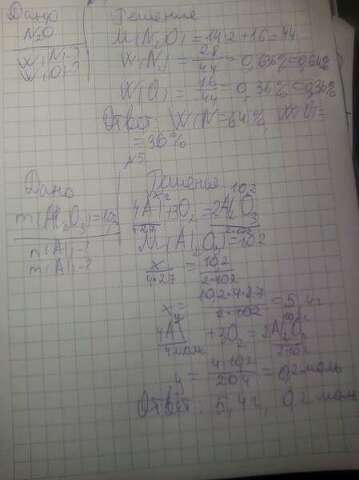 Дано
N₂O
W(N)-?
W(O)-?
Решение
M(N₂O)=14·2+16=44
W(N)=28/44=0,636%=0,64%
W(O)=16/44=0,36%=0,36%
Ответ: W(N)=64%, W(O)=
=36%
Дано
m(Al₂O₃)=10,2
n(Al)-?
m(Al)-?
Решение
x 10,2
4Al+3O₂=2Al₂O₃
4·27 2·102
M(Al₂O₃)=102
x/4·27=10,2/2·102
x=10,2·4·27/2·102=5,4г
4Al+3O₂=2Al₂O₃
4моль 2·102
=4·10,2/204=0,2моль
Ответ: 5,4г, 0,2 моль